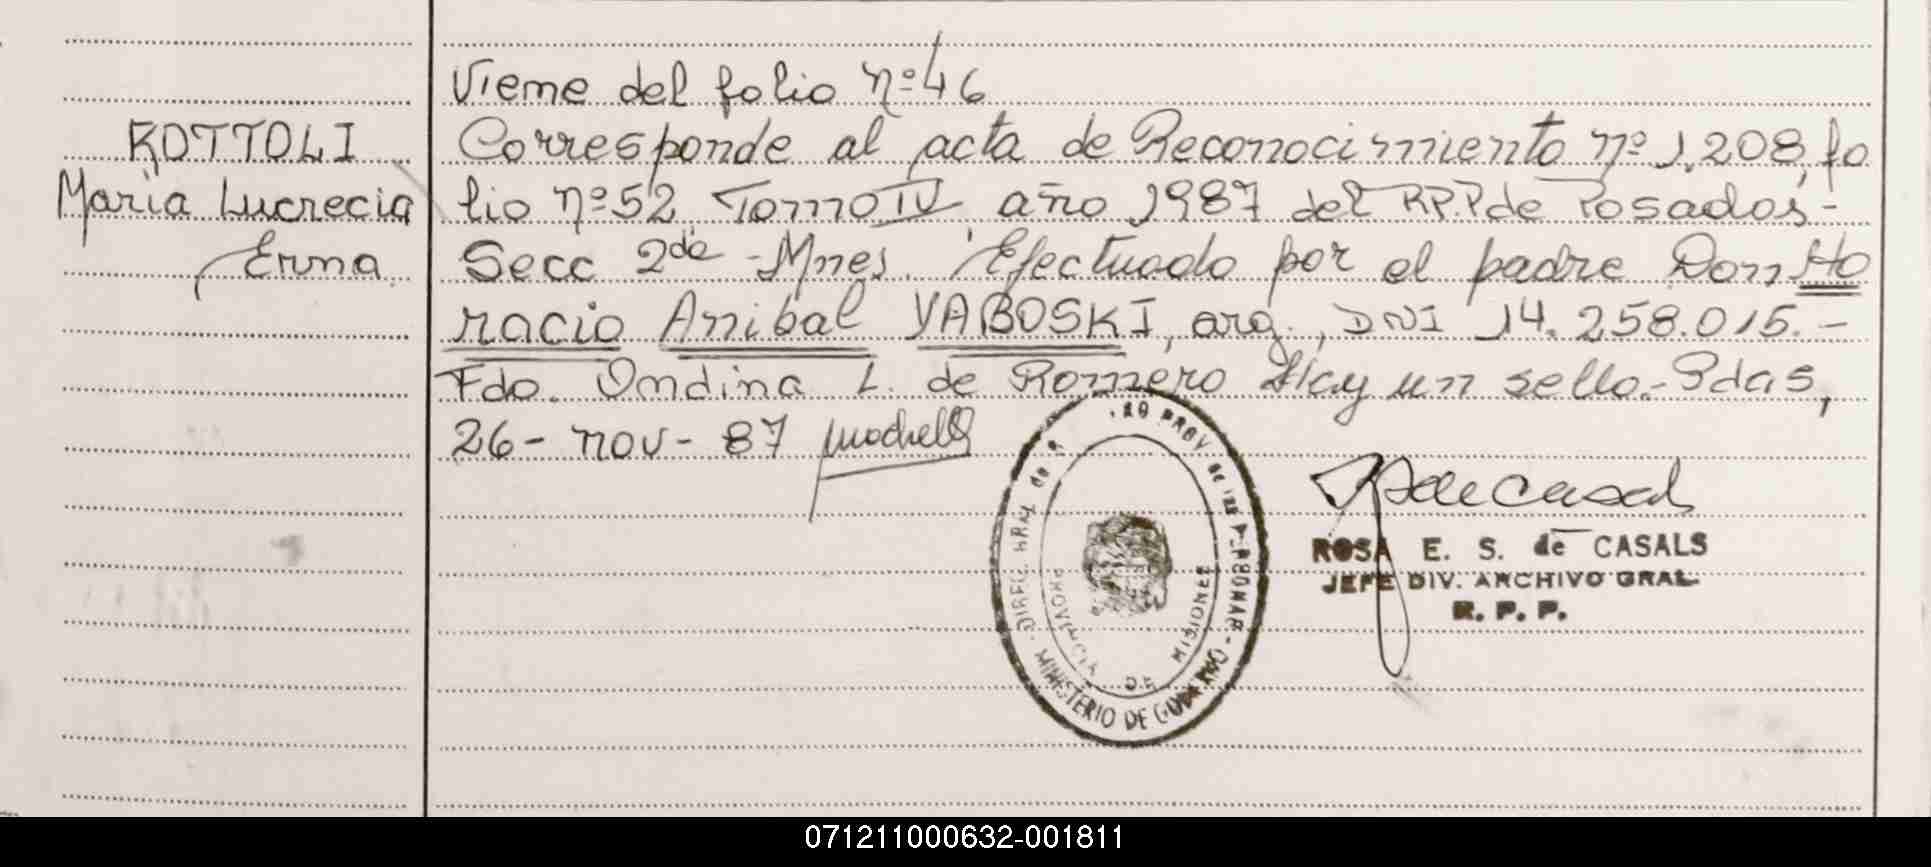 Viene del folio nº 46
ROTTOLI
Maria Lucrecia
Erna
Corresponde al acta de Reconocimiento nº 1.208, fo
lio nº 52 Tomo IV año 1987 del R.P.P de Posadas -
Secc 2da - Mnes. Efectuado por el padre Don Ho
racio Anibal YABOSKI, arg., DNI 14.258.015. -
Fdo. Ondina L. de Romero Hay un sello. - Pdas,
26 - nov - 87
DIREC. GRAL de
PROV de las PERSONAS
MINISTERIO DE GOBIERNO
PROVINCIA DE MISIONES
ROSA E. S. de CASALS
JEFE DIV. ARCHIVO GRAL.
R. P. P.
071211000632-001811